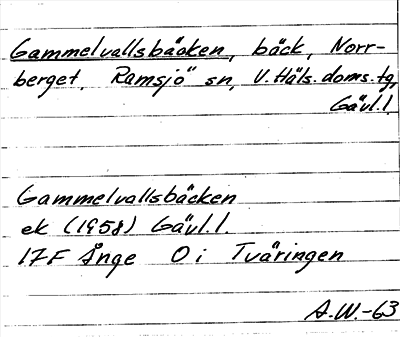 Gammelvallsbäcken, bäck, Norr-
berget, Ramsjö sn, V. Häls. doms. tg,
Gävl.l.
Gammelvallsbäcken
ek (1958) Gävl.l.
17F Ånge O i Tväringen
A.W.-63